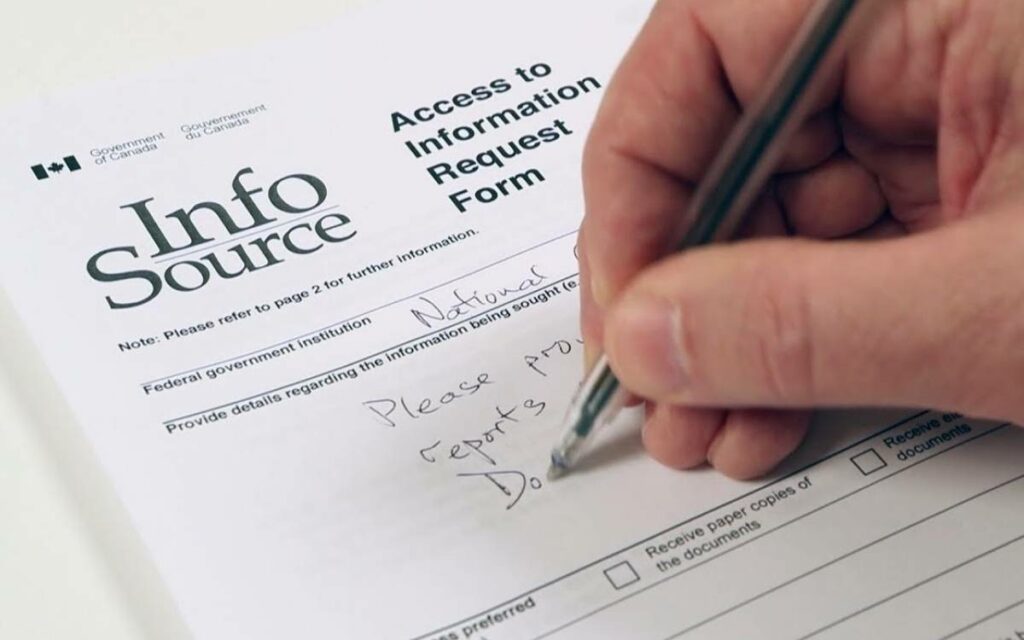 Government
of Canada
Gouvernement
du Canada
Info
Source
Access to
Information
Request
Form
Note: Please refer to page 2 for further information.
Federal government institution National
Provide details regarding the information being sought (e.
Please prov
reports
Do
Receive paper copies of
the documents
Receive
documents
preferred